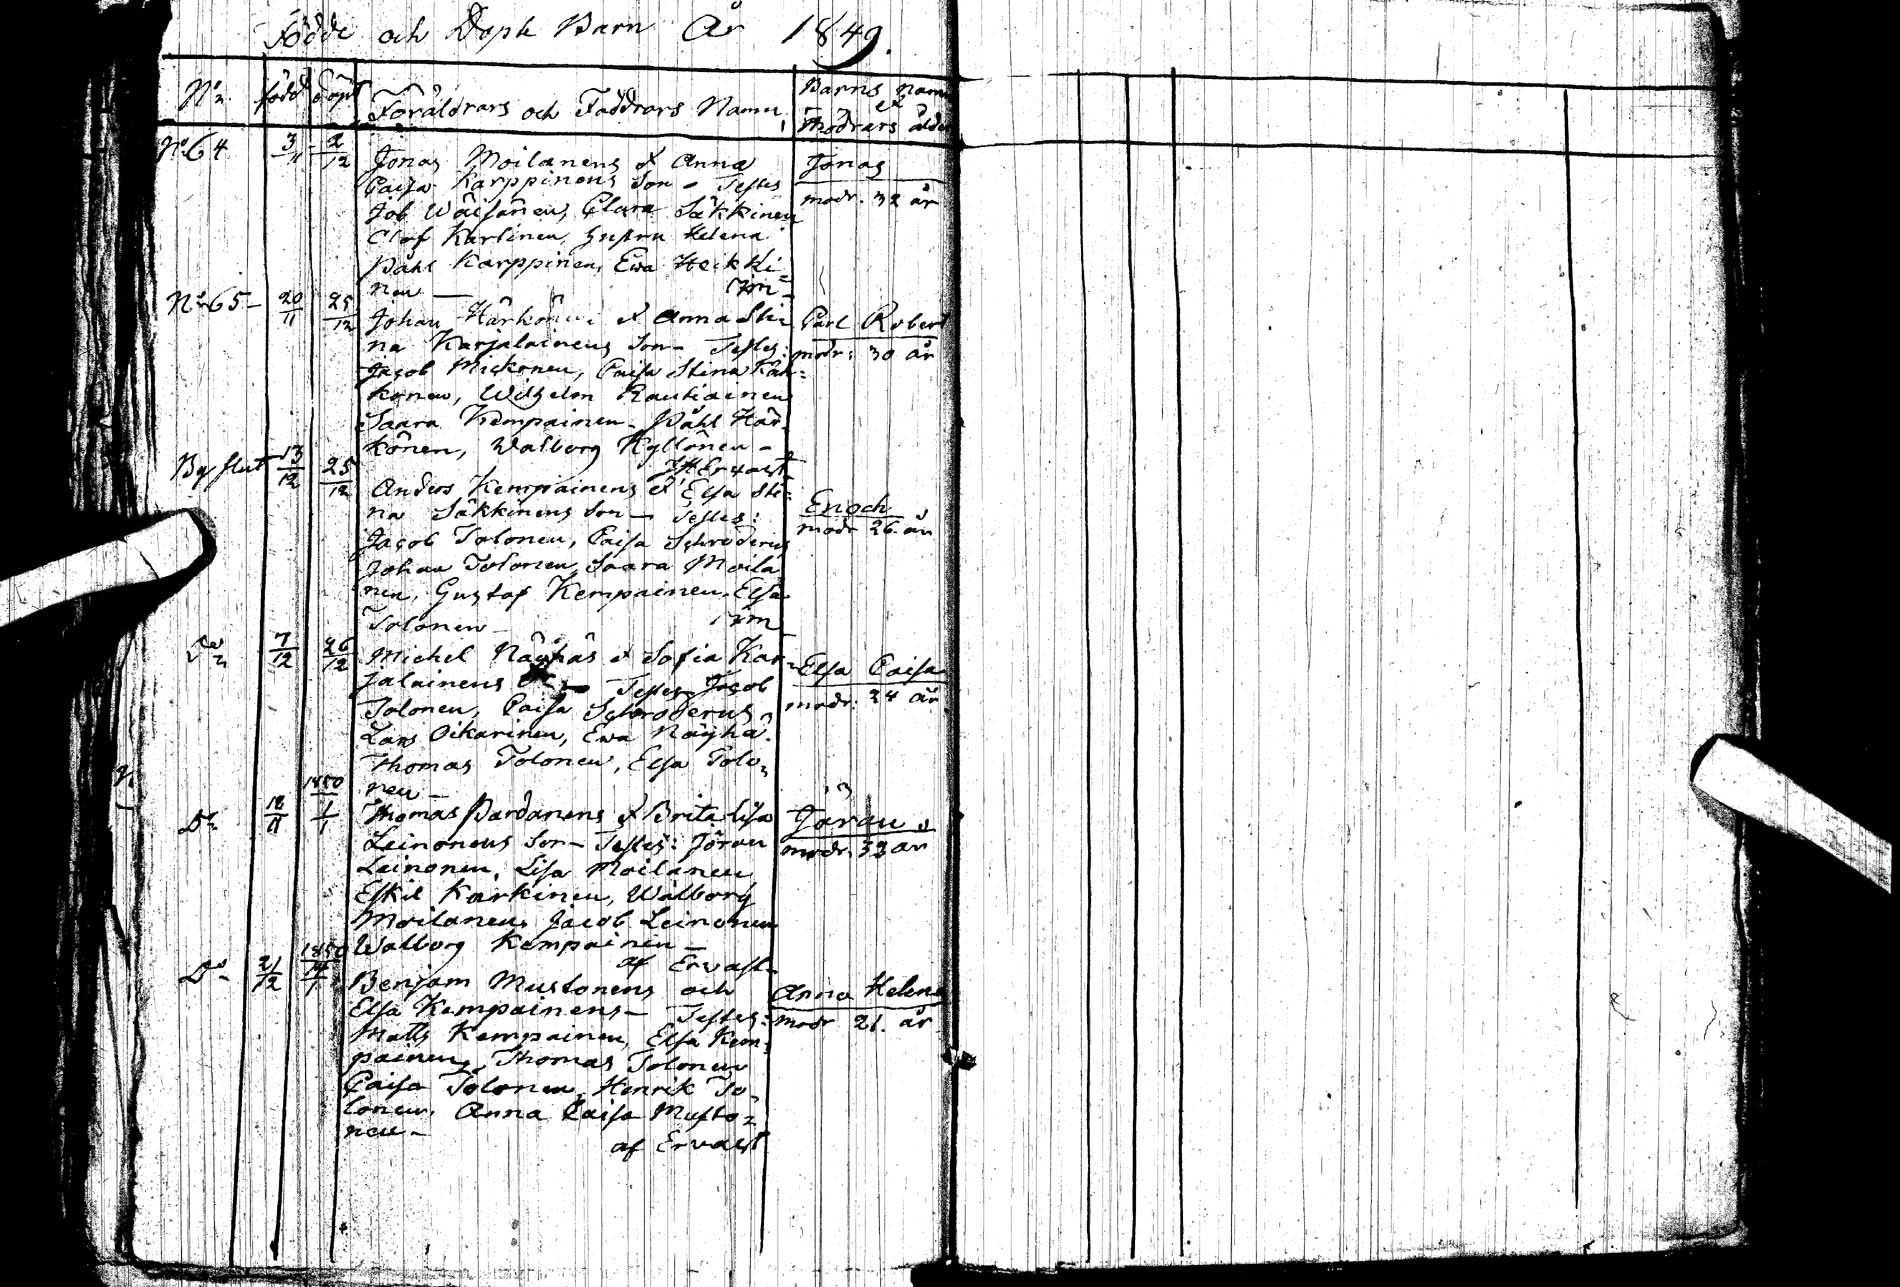 Födde och Döpte Barn År 1849.
No född döpt Föräldrars och Faddrars Namn Barns Namn et modrars ålder
No 64 3/11 2/12 Jonas Moilanens et Anna Jonas
Caisa Karppinens Son - Testes modr. 32 år
Job Wäisänen, Clara Säkkinen
Olof Karlinen, Helena
Påhl Karppinen, Ewa Heikki=
nen —
No 65 - 20/11 25/12 Johan Härkönens et Anna Sti= Carl Robert
na Karjalainens Son - Testes: modr: 30 år
Jacob Mickonen, Caisa Stina
konen, Wilhelm Rautiainen
Saara Kempainen - Påhl Här=
könen, Walborg Kyllönen -
13/12 25/12 Anders Kempainens et Elsa Sti= Enoch
na Säkkinens Son - Testes: modr 26. år
Jacob Tolonen, Caisa Schroderus
Johan Tolonen, Saara Moila
nen, Gustaf Kempainen, Elsa
Tolonen -
Do 7/12 26/12 Michel Näyhäs et Sofia Kar= Elsa Caisa
jalainens - Testes Jacob modr: 24 år
Tolonen, Caisa Schroderus
Lars Oikarinen, Ewa Näyhä.
Thomas Tolonen, Elsa Tolo=
nen -
1850
Do 12/11 1/1 Thomas Pardanens et Brita Lisa Göran
Leinonens Son - Testes: Göran modr. 32 år
Leinonen, Lisa Moilanen
Eskil Karkinen, Walborg
Moilanen, Jacob Leinonen
Walborg Kempainen -
af Ervast
1850
Do 21/12 14/1 Benjam Mustonens och Anna Helena
Elsa Kempainens - Testes: modr 21. år
Matts Kempainen, Elsa Kem=
painen, Thomas Tolonen
Caisa Tolonen, Henrik To=
lonen, Anna Caisa Musto=
nen -
af Ervast